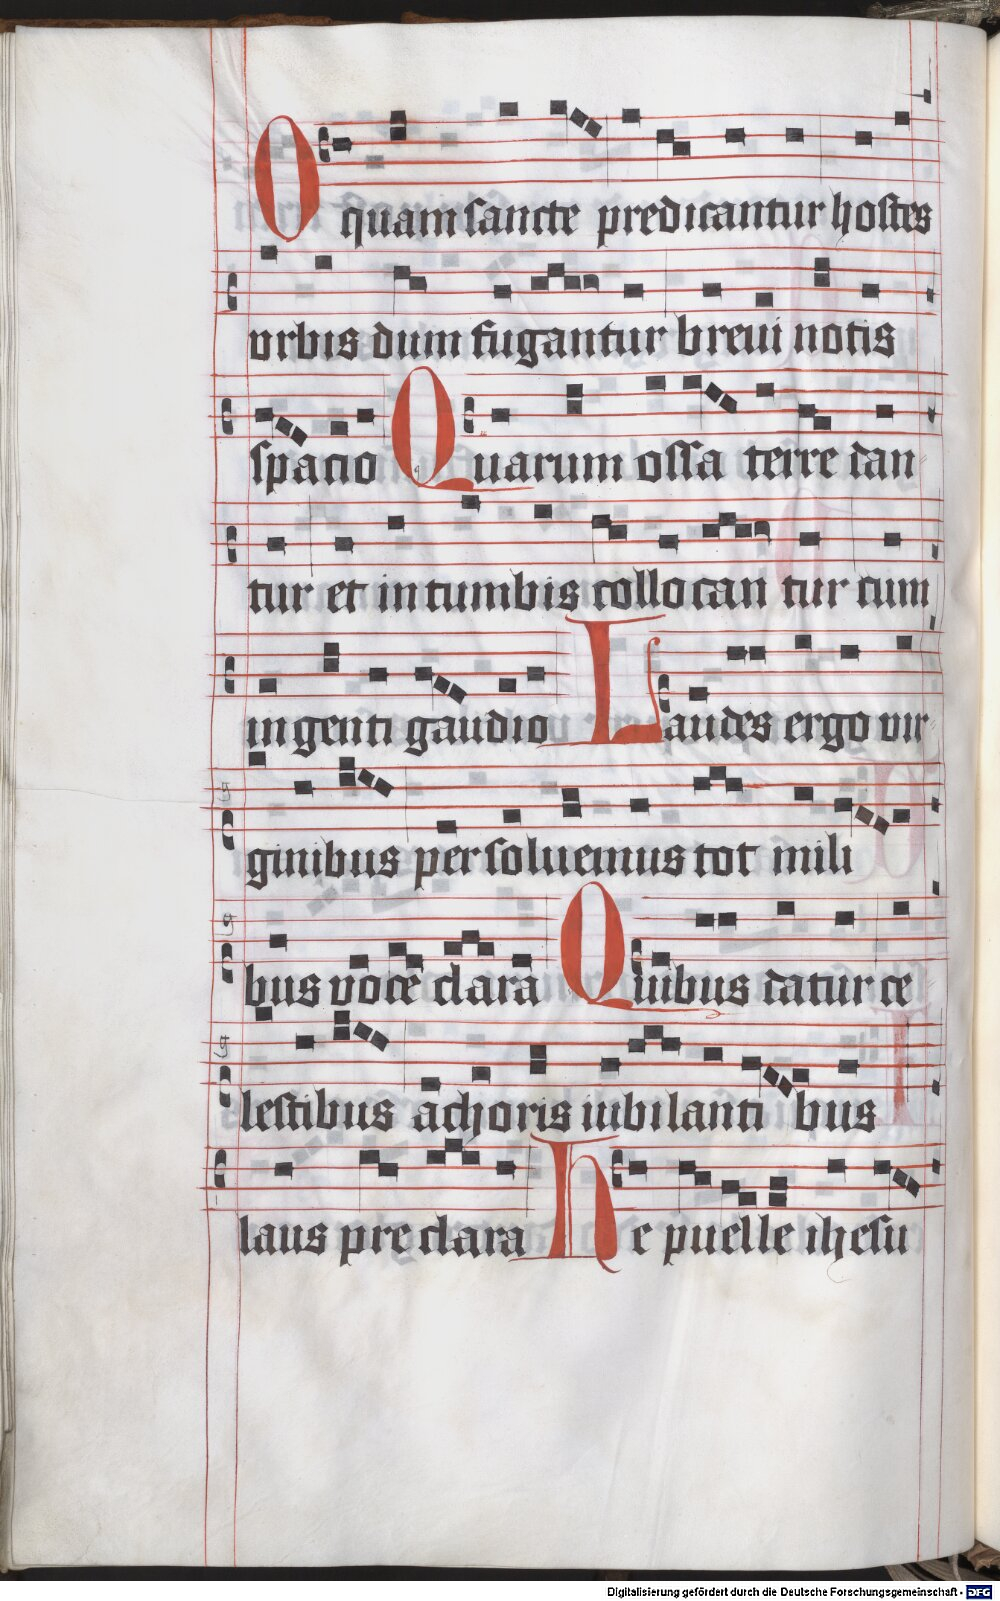 O quam sancte predicantur hostes
vrbis dum fugantur breui notis
spacio Quarum ossa terre dan
tur et in tumbis collocan tur cum
ingenti gaudio Laudes ergo vir
ginibus per soluemus tot mili
bus voce clara Quibus datur ce
lestibus a choris iubilanti bus
laus pre clara he puelle ihesu
Digitalisierung gefördert durch die Deutsche Forschungsgemeinschaft - DFG